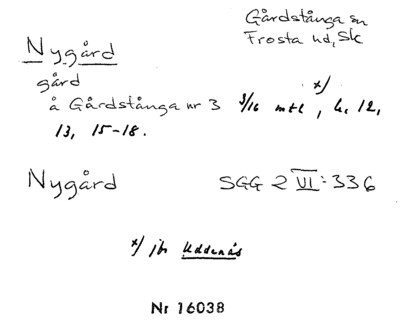 Gårdstånga sn
Frosta hd, Sk
Nygård
gård
x)
å Gårdstånga nr 3 3/16 mtl, h. 12,
13, 15-18.
Nygård SGG 2 VI:336
x) jbr Uddenäs
Nr 16038